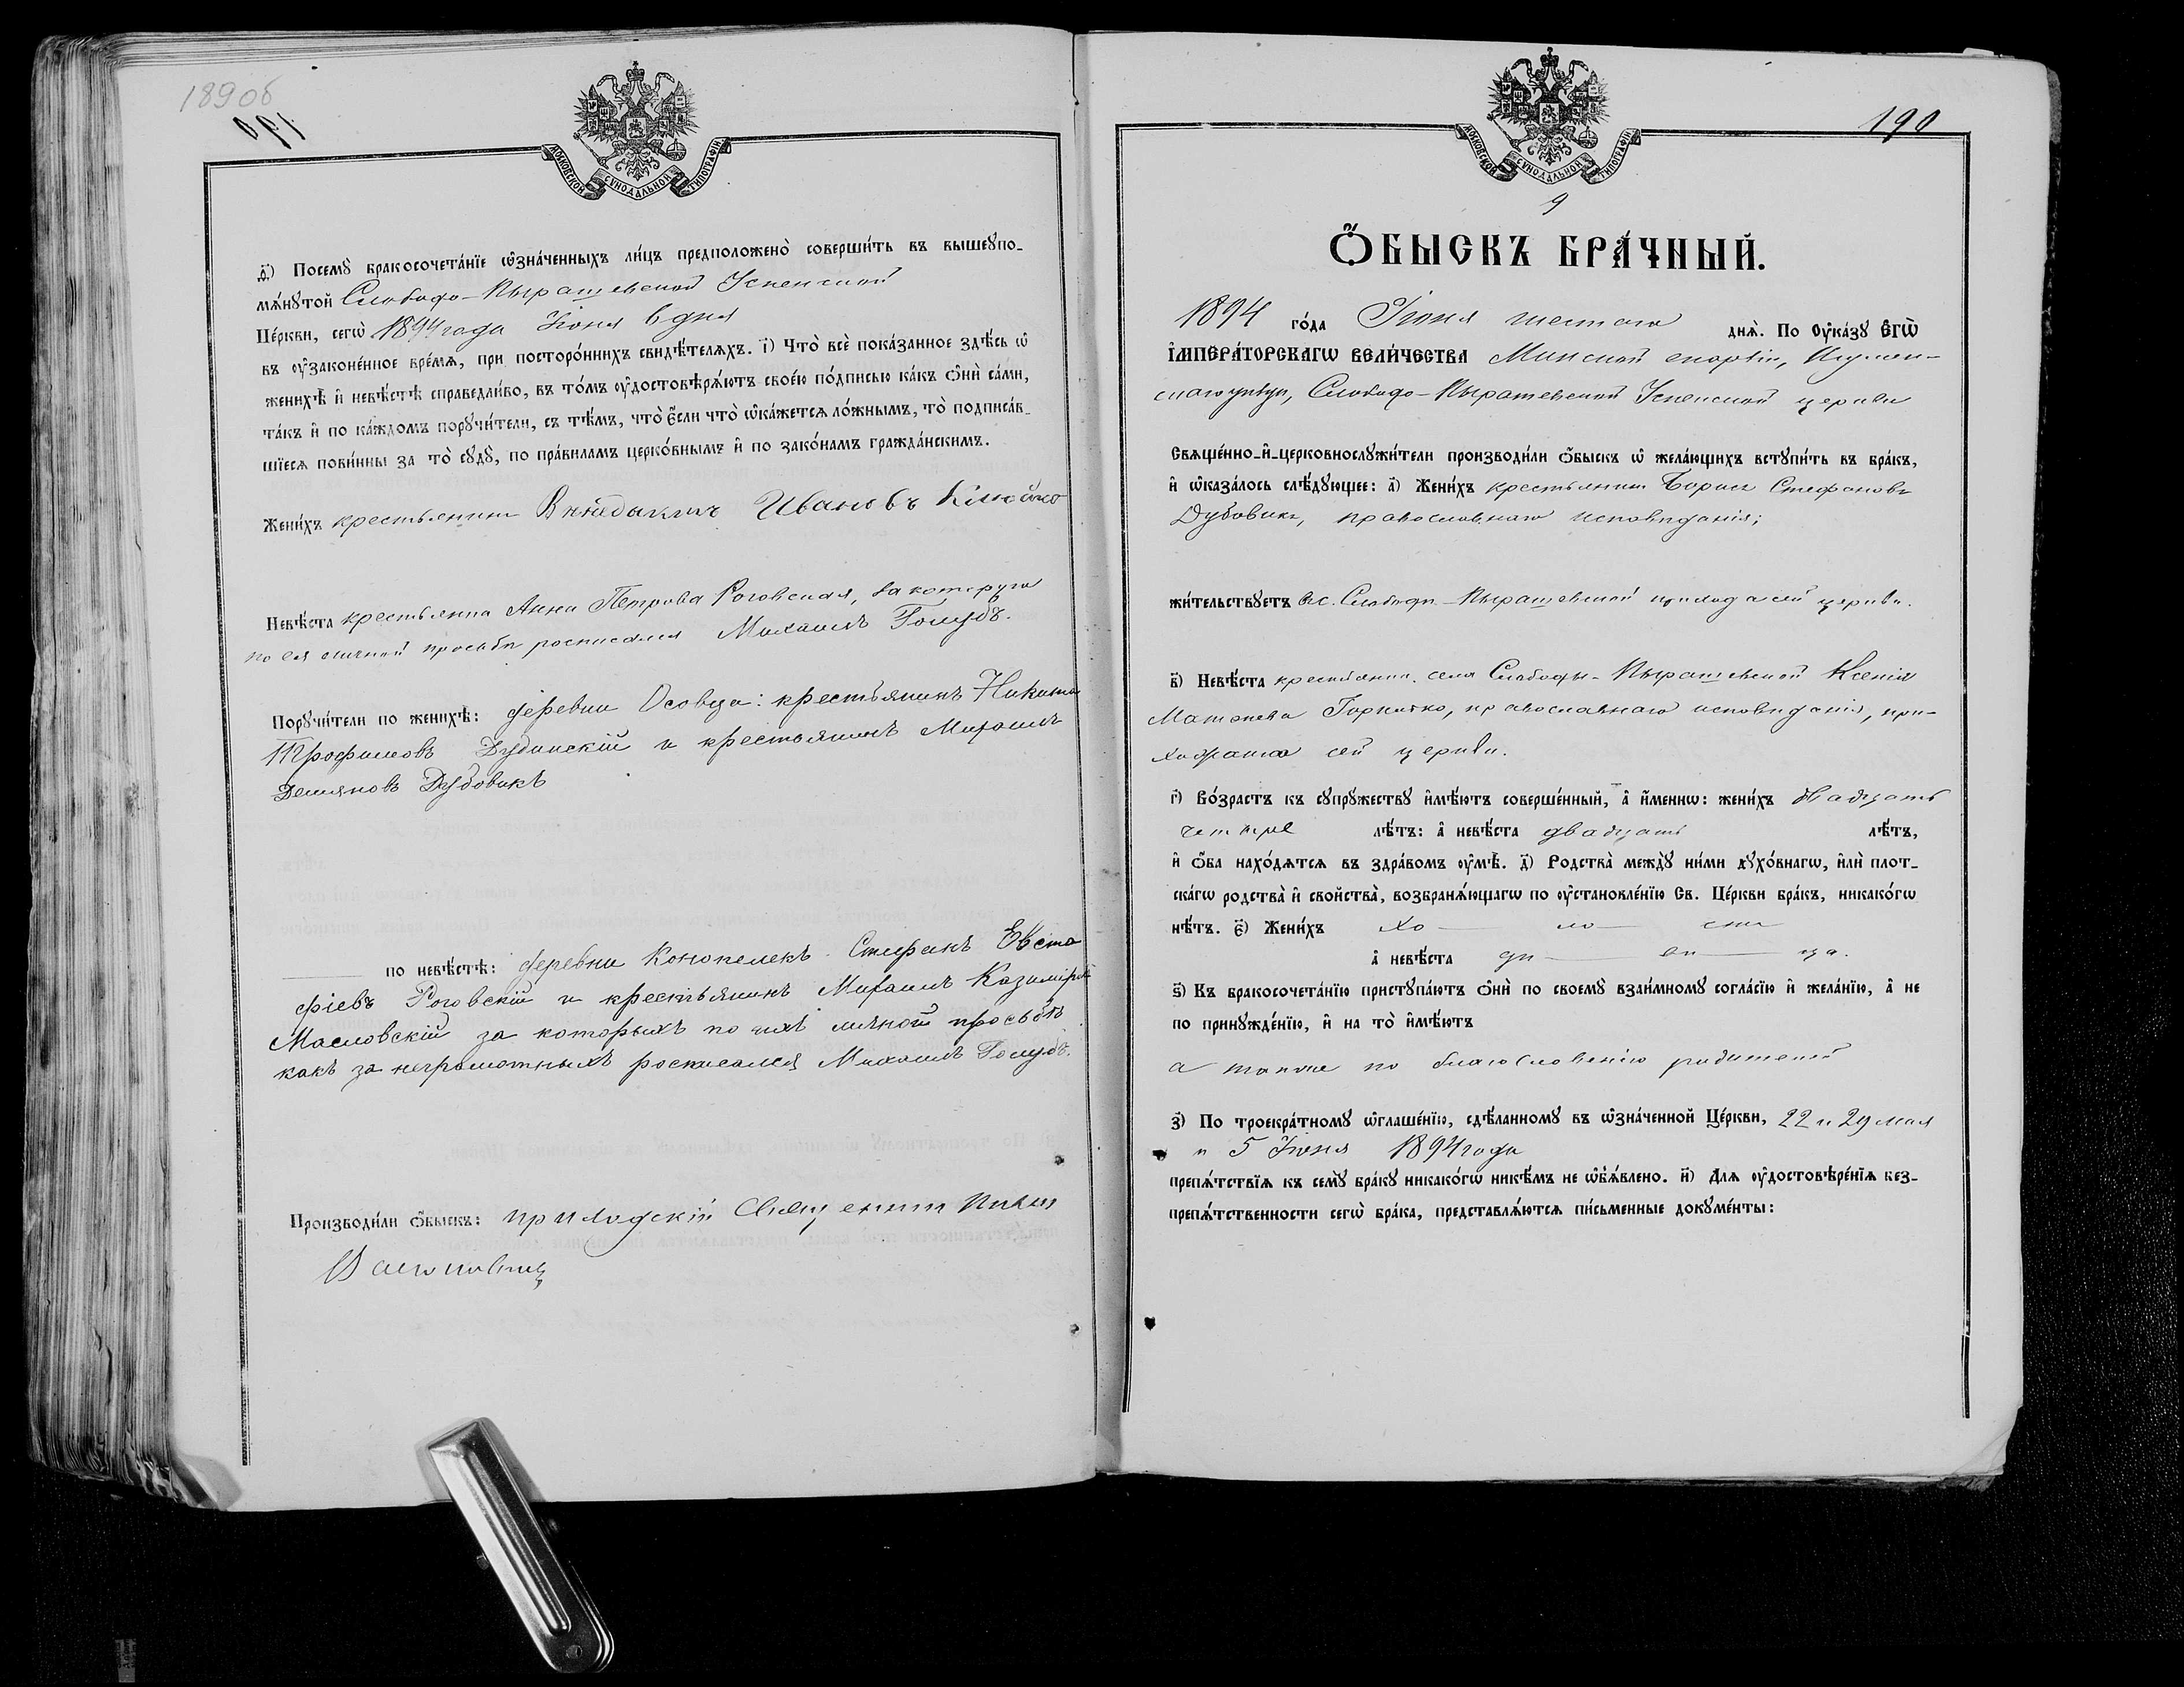 189об
190
МОСКОВСКОЙ СѴНОДАЛЬНОЙ ТИПОГРАФІИ
ѳ҃) Посемꙋ̀ бракосочета́нїе ѡ҆зна́ченныхъ ли́цъ предположено̀ соверши́ть въ вышеꙋпо-
мѧ́нꙋтой Слободо-Пырашевской Успенской
Це́ркви, сегѡ̀ 1894 года Іюня 6 дня
въ ᲂу҆законе́нное вре́мѧ, при посторо́ннихъ свидѣ́телѧхъ. і҃) Что̀ всѐ пока́занное здѣ́сь ѡ҆
женихѣ̀ и҆ невѣ́стѣ справедли́во, въ то́мъ ᲂу҆достовѣрѧ́ютъ свое́ю по́дписью ка́къ ѻ҆нѝ са́ми,
та́къ и҆ по ка́ждомъ порꙋчи́тели, съ тѣ́мъ, что̀ є҆́сли что̀ ѡ҆ка́жетсѧ ло́жнымъ, то̀ подписа́в-
шїесѧ пови́нны за то̀ сꙋдꙋ̀, по пра́виламъ церко́внымъ и҆ по зако́намъ гражда́нскимъ.
Жени́хъ крестьянинъ Ивановъ
Невѣ́ста крестьянка Анна Петрова Роговская, за которую
по ея личной просьбѣ росписался Михаилъ Голубъ.
Порꙋчи́тели по женихѣ̀: деревни Осовца: крестьянинъ Никита
Трофимовъ Дудинскій и крестьянинъ Михаилъ
Демяновъ Дубовикъ
по невѣ́стѣ: деревни Конопелекъ Стефанъ Евста
фіевъ Роговскій и крестьянинъ Михаилъ Казиміровъ
Масловскій за которыхъ по ихъ личной просьбѣ
какъ за неграмотныхъ росписался Михаилъ Голубъ.
Производи́ли ѻ҆́быскъ: приходскій Священникъ
190
МОСКОВСКОЙ СѴНОДАЛЬНОЙ ТИПОГРАФІИ
9
Ѻ҆́БЫСКЪ БРА́ЧНЫЙ.
1894 го́да Іюня шестаго днѧ̀. По ᲂу҆ка́зꙋ Є҆ГѠ̀
І҆МПЕРА́ТОРСКАГѠ ВЕЛИ́ЧЕСТВА Минской епархіи, Игумен-
скаго уѣзда, Слободо-Пырашевской Успенской церкви
Свѧще́нно-и҆-церковнослꙋжи́тели производи́ли ѻ҆́быскъ ѡ҆ жела́ющихъ встꙋпи́ть въ бра́къ,
и҆ ѡ҆каза́лось слѣ́дꙋющее: а҃) Жени́хъ крестьянинъ Борисъ Стефановъ
Дубовикъ, православнаго исповѣданія;
жи́тельствꙋетъ въ с. Слободѣ-Пырашевской прихода сей церкви.
в҃) Невѣ́ста крестьянка села Слободы-Пырашевской Ксенія
Матвѣева православнаго исповѣданія, при-
хожанка сей церкви.
г҃) Во́зрастъ къ сꙋпрꙋ́жествꙋ и҆мѣ́ютъ соверше́нный, а҆ и҆́меннѡ: жени́хъ двадцать
четыре лѣ́тъ: а҆ невѣ́ста двадцать лѣ́тъ,
и҆ ѻ҆́ба нахо́дѧтсѧ въ здра́вомъ ᲂу҆мѣ̀. д҃) Родства̀ междꙋ̀ ни́ми дꙋхо́внагѡ, и҆лѝ плот-
ска́гѡ родства̀ и҆ свойства̀, возбранѧ́ющагѡ по ᲂу҆становле́нїю Св. Це́ркви бра́къ, никако́гѡ
нѣ́тъ. є҃) Жени́хъ хо — ло — стъ
а҆ невѣ́ста дѣ — ви — ца.
ѕ҃) Къ бракосочета́нїю пристꙋпа́ютъ ѻ҆нѝ по своемꙋ̀ взаи́мномꙋ согла́сїю и҆ жела́нїю, а҆ не
по принꙋжде́нїю, и҆ на то̀ и҆мѣ́ютъ
а также по благословенію родителей
з҃) По троекра́тномꙋ ѡ҆глаше́нїю, сдѣ́ланномꙋ въ ѡ҆зна́ченной Це́ркви, 22 и 29 мая
и 5 Іюня 1894 года
препѧ́тствїѧ къ семꙋ̀ бра́кꙋ никако́гѡ никѣ́мъ не ѡ҆б̾ѧ́влено. и҃) Длѧ ᲂу҆достовѣре́нїѧ без-
препѧ́тственности сегѡ̀ бра́ка, представлѧ́ютсѧ пи́сьменные докꙋме́нты: